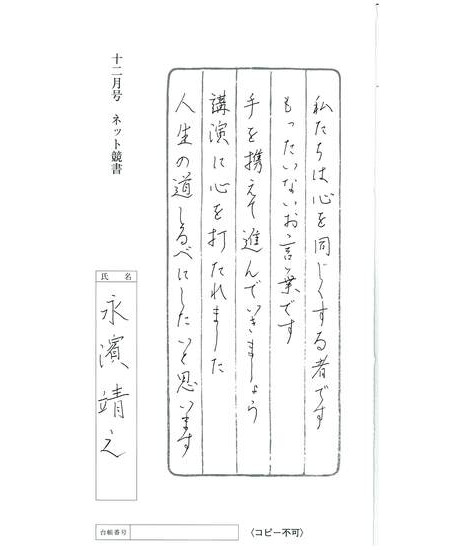 私たちは心を同じくする者です
もったいないお言葉です
手を携えて進んでいきましょう
講演に心を打たれました
人生の道しるべにしたいと思います
十二月号 ネット競書
氏名
永濱靖之
台帳番号
〈コピー不可〉